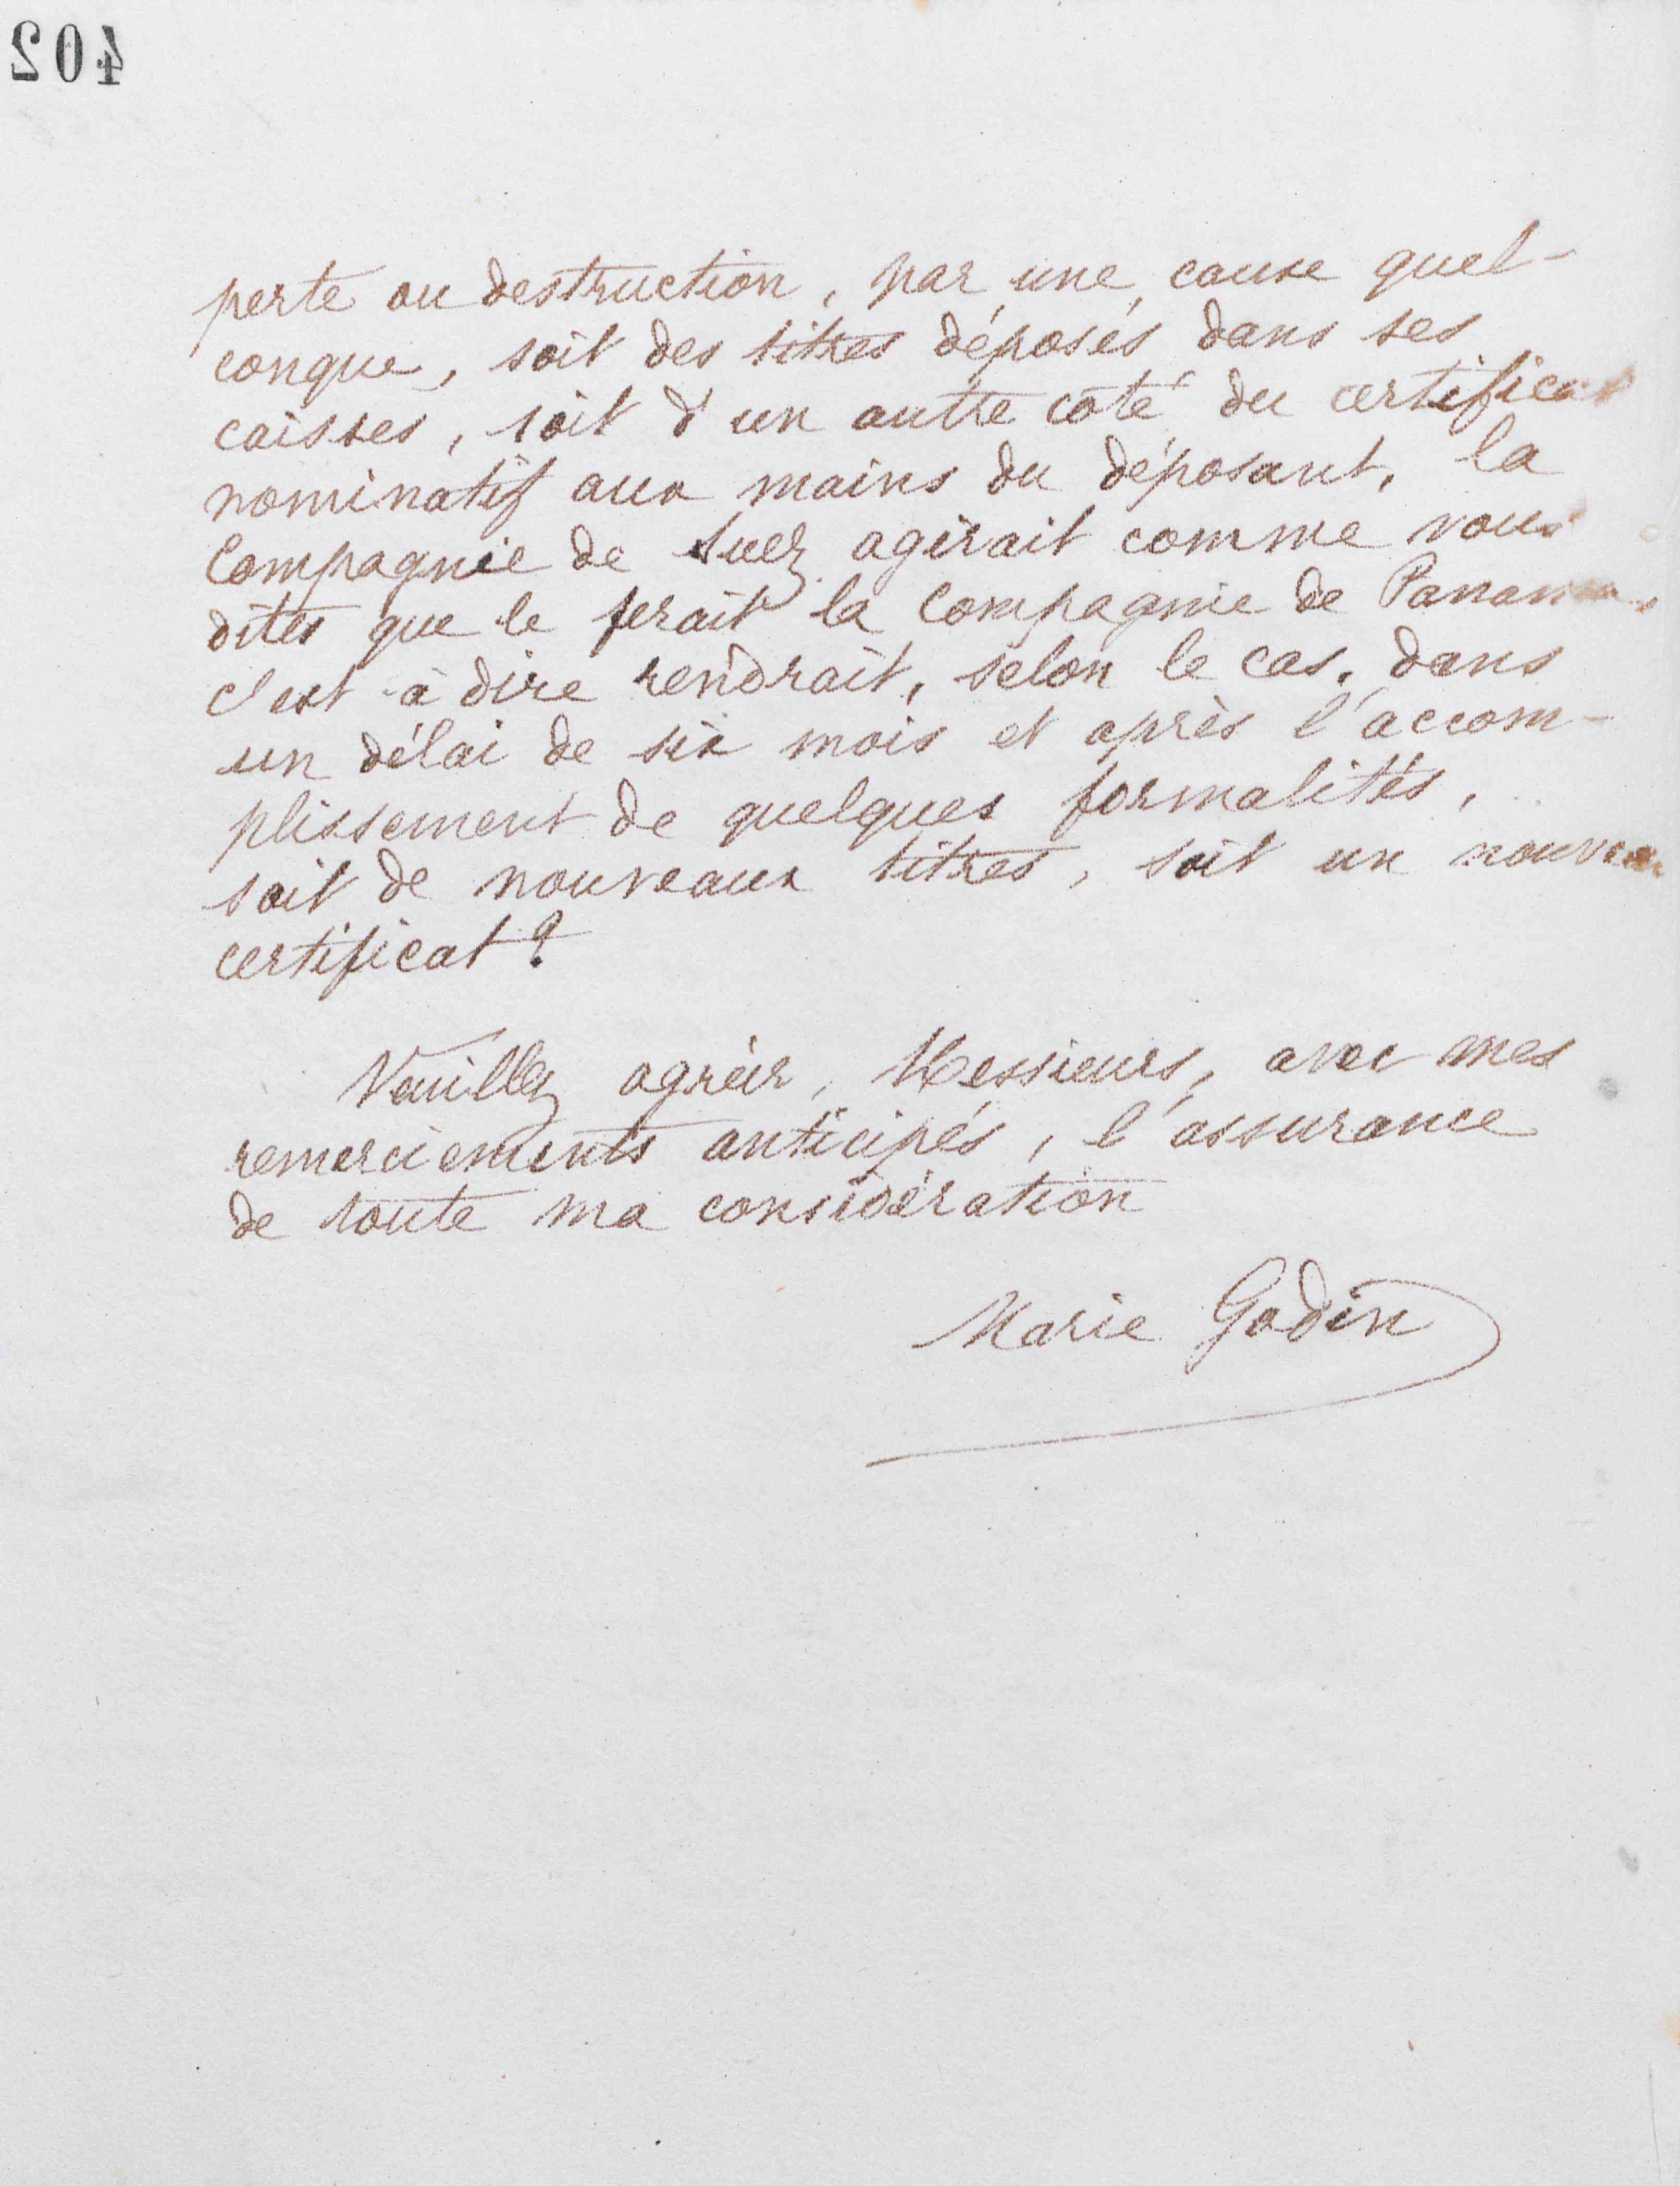 402
perte ou destruction, par une cause quel-
conque, soit des titres déposés dans ses
caisses, soit d'un autre côté du certificat
nominatif aux mains du déposant, la
Compagnie de Suez agirait comme vous
dites que le ferait la Compagnie de Panama,
c'est-à dire rendrait, selon le cas, dans
un délai de six mois et après l'accom-
plissement de quelques formalités,
soit de nouveaux titres, soit un nouveau
certificat ?
Veuillez agréer, Messieurs, avec mes
remerciements anticipés, l'assurance
de toute ma considération
Marie Godin